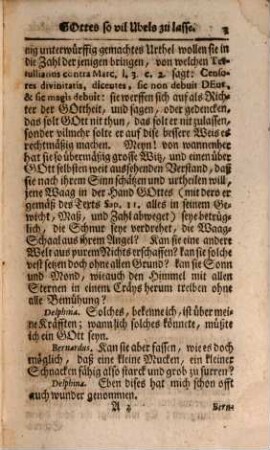 GOttes so vil Ubels zu lasse. 3
nig unterwürffig gemachtes Urthel wollen sie in
die Zahl der jenigen bringen, von welchen Ter-
tullianus contra Marc. l. 3. c. 2. sagt: Censo-
res divinitatis, dicentes, sic non debuit DEus,
& sic magis debuit: sie werffen sich auf als Rich-
ter der GOttheit, und sagen, oder gedencken,
das solt GOtt nit thun, das solt er nit zulassen,
sonder vilmehr solte er auf dise bessere Weis es
rechtmässig machen. Meyn! von wannenher
hat sie so übermäßig grosse Witz, und einen über
GOtt selbsten weit aussehenden Verstand, daß
sie nach ihrem Sinn schätzen und urtheilen will,
jene Waag in der Hand GOttes (mit dero er
gemäß des Texts Sap. 11. alles in seinem Ge-
wicht, Maß, und Zahl abweget) seye betrüg-
lich, die Schnur seye verdreht, die Waag-
Schaal aus ihrem Angel? Kan sie eine andere
Welt aus purem Nichts erschaffen? kan sie selbe
vest setzen doch ohne allen Grund? kan sie Sonn
und Mond, wie auch den Himmel mit allen
Sternen in einem Cräys herum treiben ohne
alle Bemühung?
Delphina. Solches, bekenne ich, ist über mei-
ne Kräfften; wann ich solches könnte, müßte
ich ein GOtt seyn.
Bernardus. Kan sie aber fassen, wie es doch
möglich, daß eine kleine Mucken, ein kleiner
Schnacken fähig also starck und grob zu surren?
Delphina. Eben dises hat mich schon offt
auch wunder genommen.
A 2 Berna-